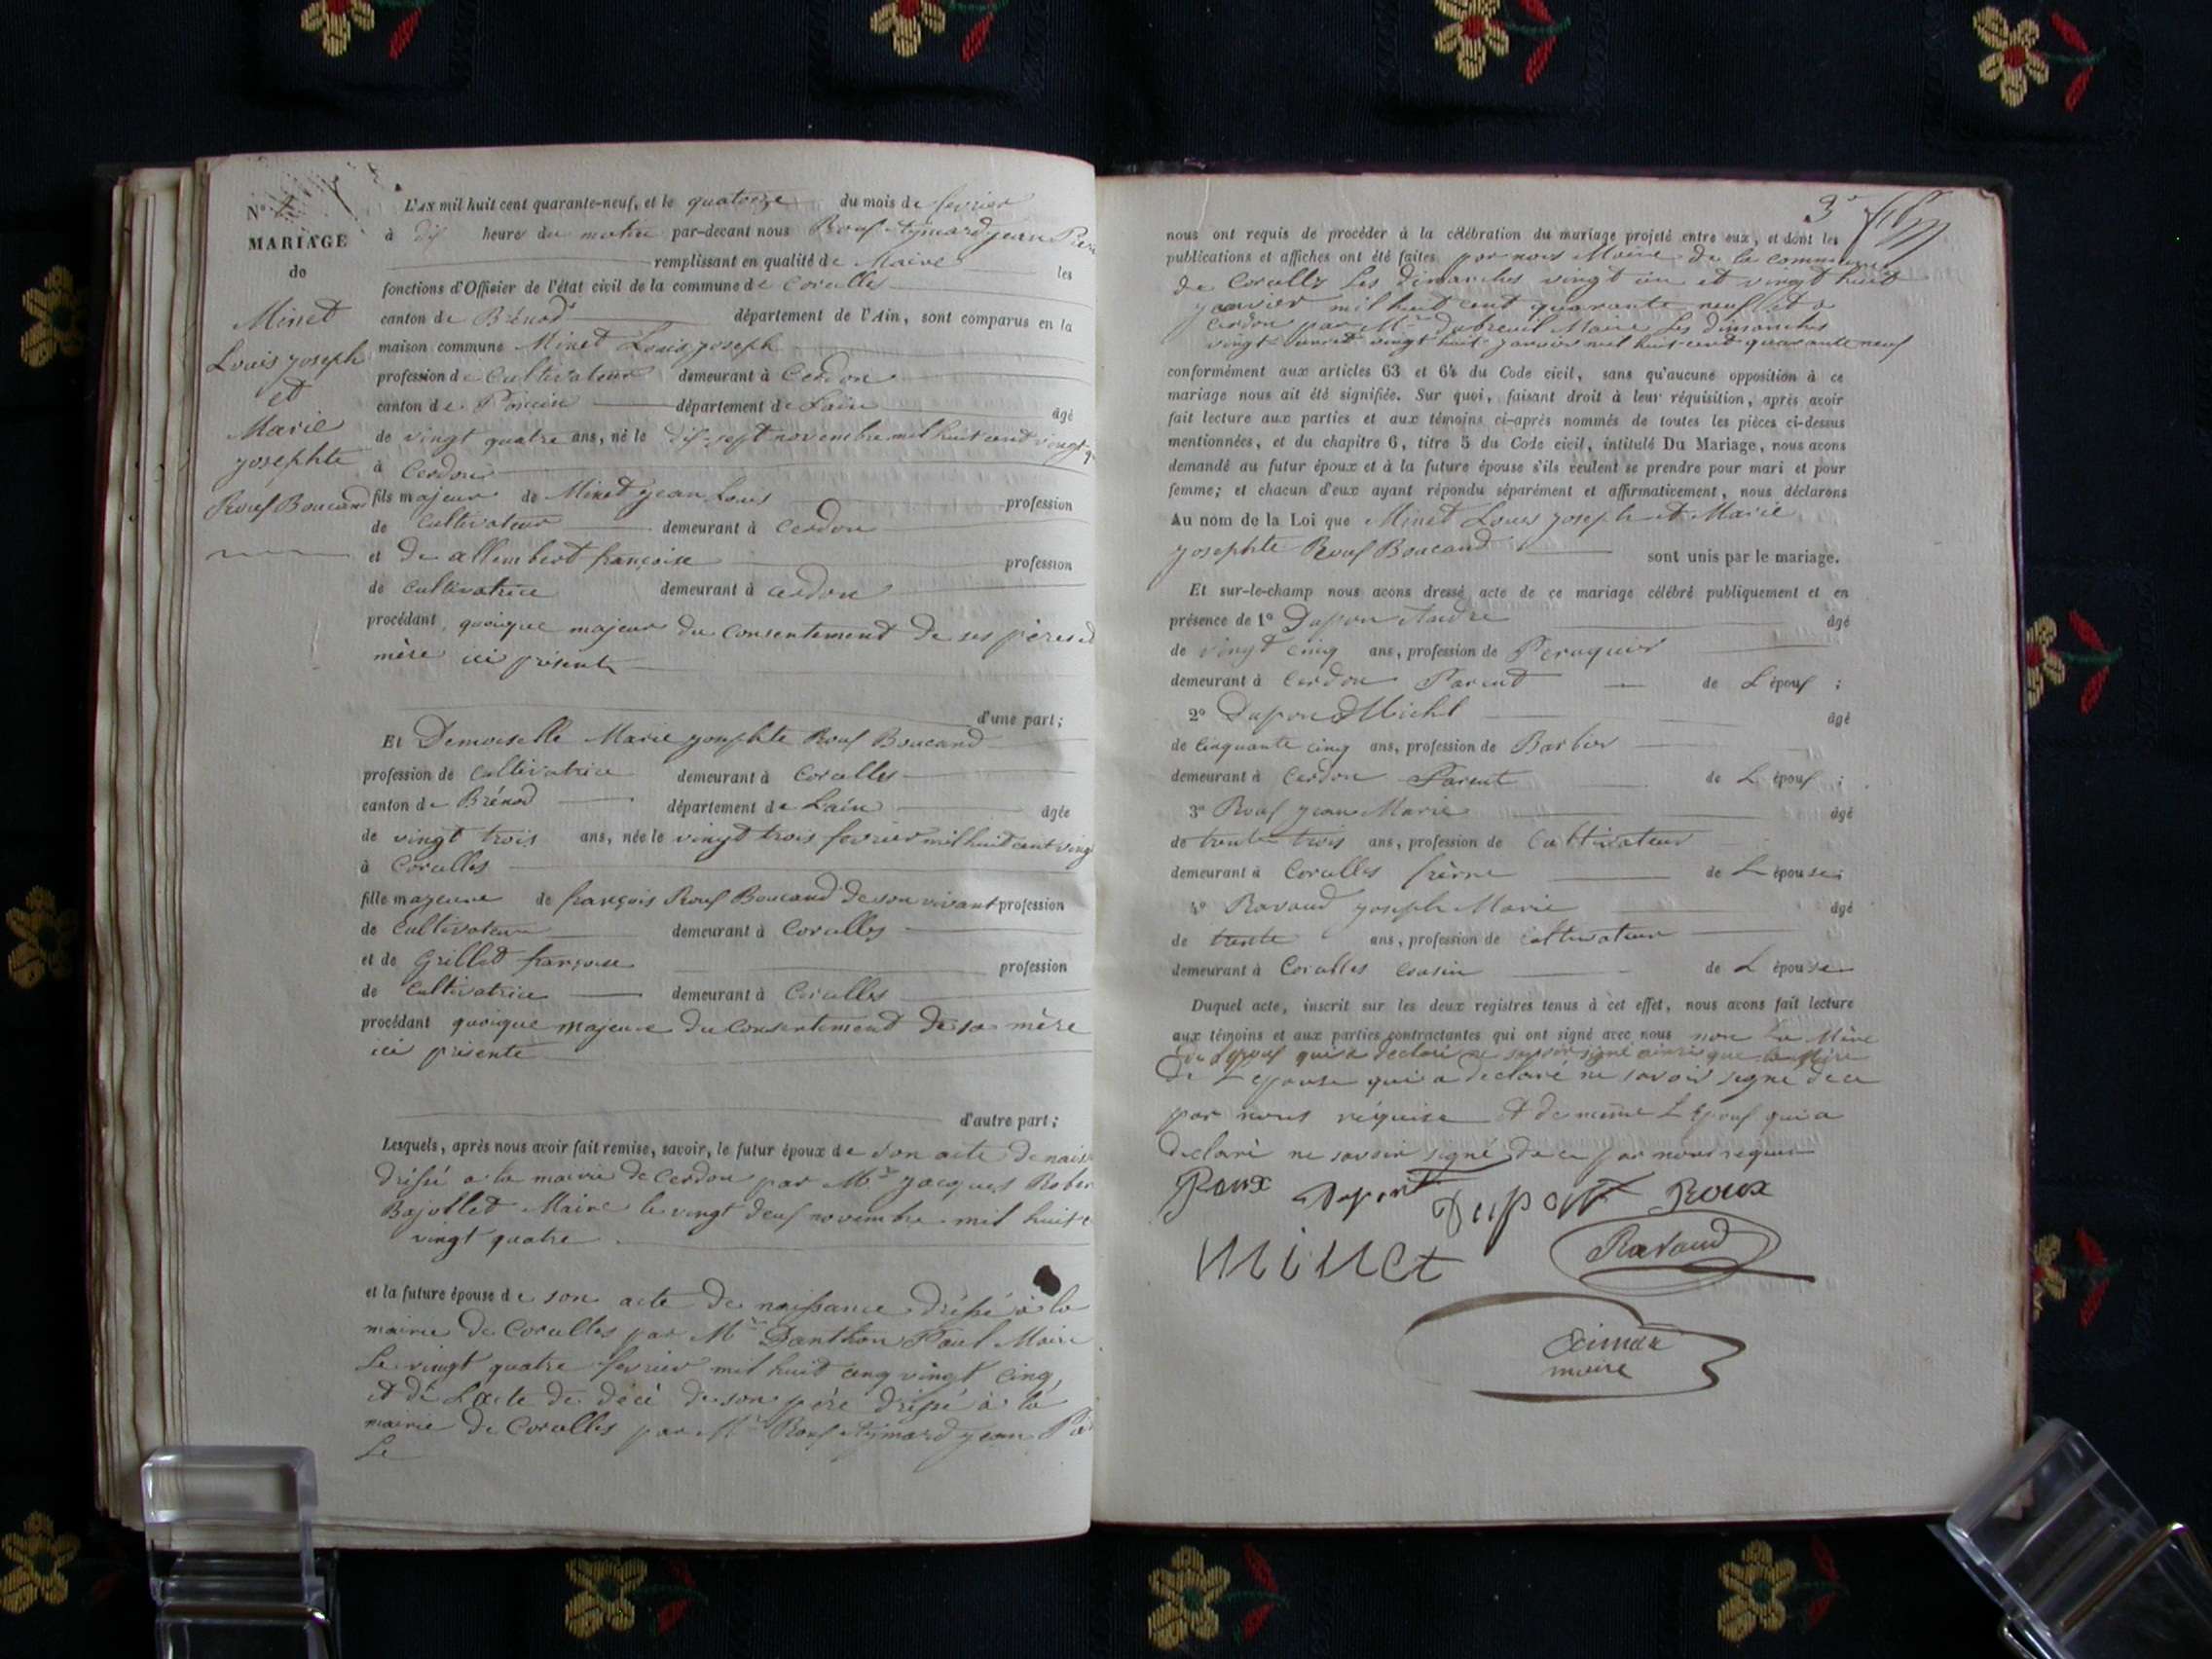 N°
MARIAGE
de
Minet
Louis joseph
et
Marie
josephte
Rouf Boucand
L'an mil huit cent quarante-neuf, et le quatorze du mois de fevrier
à dix heure du matin par-devant nous Rouf Aymard jean Pierre
remplissant en qualité de Maire les
fonctions d'Officier de l'état civil de la commune de Corcelles
canton de Brénod département de l'Ain, sont comparus en la
maison commune Minet Louis joseph
profession de Cultivateur demeurant à Cerdon
canton de Poncin département de Lain âgé
de vingt quatre ans, né le dix-sept novembre mil huit cent vingt-qu
à Cerdon
fils majeur de Minet jean Louis profession
de Cultivateur demeurant à Cerdon
et de allembert françoise profession
de Cultivatrice demeurant à cerdon
procédant, quoique majeur du consentement de ses pères et
mère ici présents
d'une part;
Et Demoiselle Marie josephte Rouf Boucand
profession de Cultivatrice demeurant à Corcelles
canton de Brénod département de Lain âgée
de vingt trois ans, née le vingt trois fevrier mil huit cent ving
à Corcelles
fille majeure de françois Rouf Boucand de son vivant profession
de Cultivateur demeurant à Corcelles
et de Grillet françoise profession
de Cultivatrice demeurant à Corcelles
procédant quoique majeure du Consentement de sa mère
ici présente
d'autre part;
Lesquels, après nous avoir fait remise, savoir, le futur époux de son acte de naiss
dréssé a la mairie de Cerdon par Mr jacques Rober
Bajollet Maire le vingt deux novembre mil huit c
vingt quatre
et la future épouse de son acte de naissance dréssé à la
mairie de Corcelles par Mr Danthon Paul Maire
Le vingt quatre fevrier mil huit cenq vingt cinq,
et de Lacte de décé de son père dréssé à la
mairie de Corcelles par Mr Rouf Aymard jean Pie
Le
3e
nous ont requis de procéder à la célébration du mariage projeté entre eux, et dont les
publications et affiches ont été faites par nous Maire de la commune
de Corcelles Les dimanches vingt un et vingt huit
janvier mil huit cent quarante neuf et a
Cerdon par Mr dubreuil Maire Les dimanches
vingt un et vingt huit janvier mil huit cent quarante neuf
conformément aux articles 63 et 64 du Code civil, sans qu'aucune opposition à ce
mariage nous ait été signifiée. Sur quoi, faisant droit à leur réquisition, après avoir
fait lecture aux parties et aux témoins ci-après nommés de toutes les pièces ci-dessus
mentionnées, et du chapitre 6, titre 5 du Code civil, intitulé Du Mariage, nous avons
demandé au futur époux et à la future épouse s'ils veulent se prendre pour mari et pour
femme; et chacun d'eux ayant répondu séparément et affirmativement, nous déclarons
Au nom de la Loi que Minet Louis joseph et Marie
josephte Rouf Boucand sont unis par le mariage.
Et sur-le-champ nous avons dressé acte de ce mariage célébré publiquement et en
présence de 1° Dupon Andre âgé
de vingt cinq ans, profession de Peruquier
demeurant à Cerdon Parent de L'épouf ;
2° Dupond Michl âgé
de Cinquante cinq ans, profession de Barbier
demeurant à Cerdon Parent de L'épouf ;
3° Rouf jean Marie âgé
de trente trois ans, profession de Cultivateur
demeurant à Corcelles frèrre de L'épouse;
4° Ravaud joseph Marie âgé
de trente ans, profession de Cultivateur
demeurant à Corcelles Cousin de L'épouse
Duquel acte, inscrit sur les deux registres tenus à cet effet, nous avons fait lecture
aux témoins et aux parties contractantes qui ont signé avec nous non La Mère
de Lépouf qui a declaré ne savoir signé ainsi que la Mère
de Lepouse qui a declaré ne savoir signé de ce
par nous réquise et de même L'Epouf qui a
declaré ne savoir signé de ce par nous requis
Roux Dupont Dupont Roux
Minet Ravaud
Aimar
maire